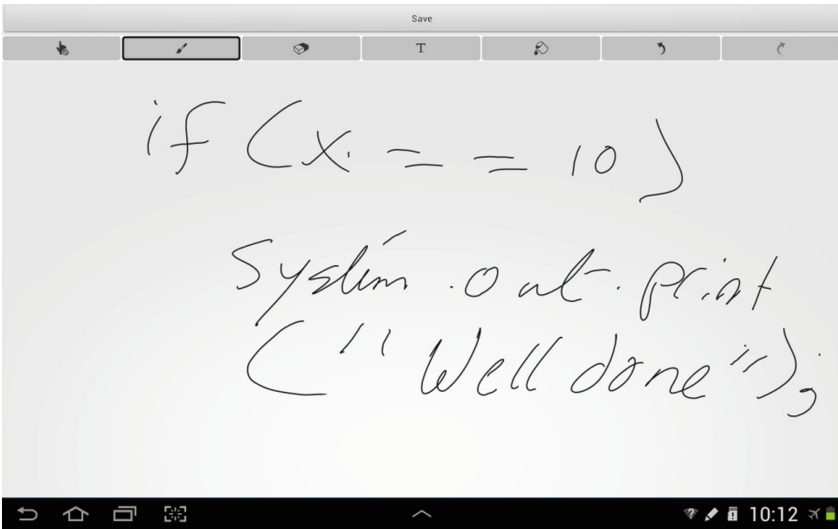 Save
T
if (x == 10)
System.out.print
("Well done");
10:12